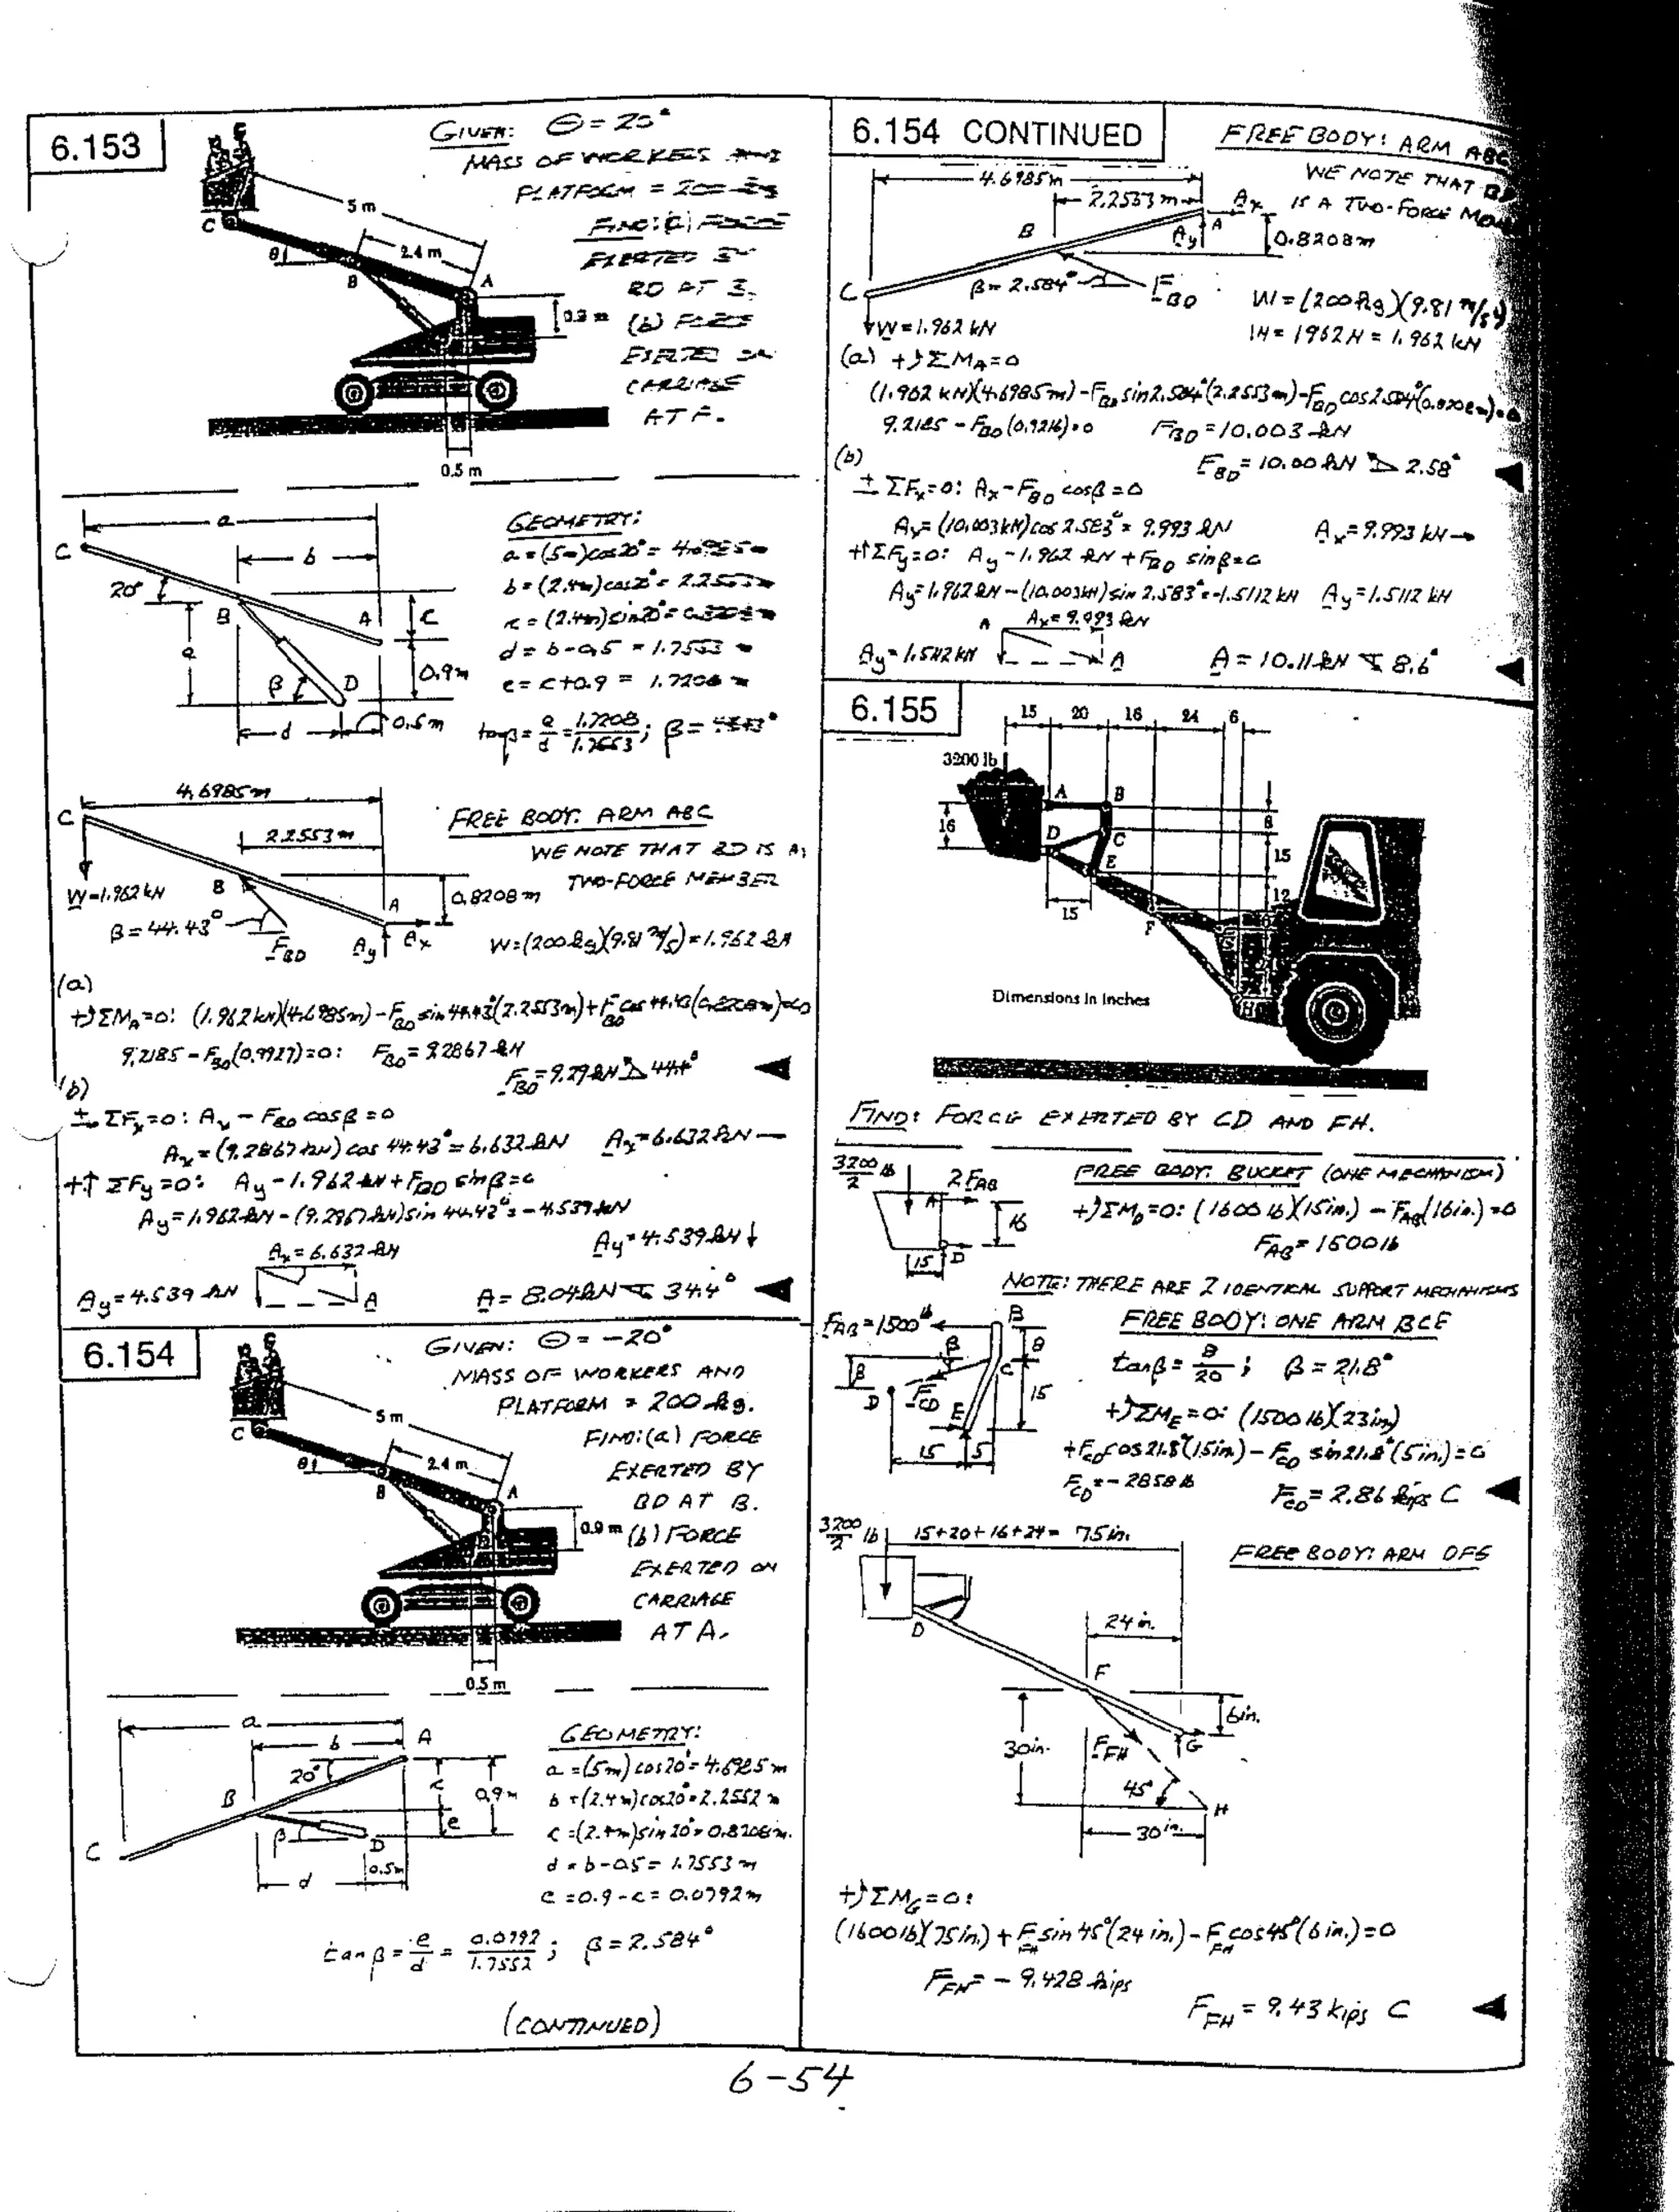 6.153
GIVEN: θ = 20°
MASS OF WORKERS AND
PLATFORM = 200 kg
5 m
2.4 m
C
θ
B
A
0.5 m
BD AT B.
(b) FORCE
EXERTED ON
CARRIAGE
a
b
C
20°
B
A
c
0.9 m
β
D
d
0.5 m
GEOMETRY:
a = (5 m) cos 20° =
b = (2.4 m)
d = b - 0.5 = 1.7553 m
e = c + 0.9 = 1.7208 m
4.6985 m
C
2.2553 m
W = 1.962 kN
B
A
0.8208 m
β = 44.43°
F_BD
A_y
A_x
FREE BODY: ARM ABC
WE NOTE THAT BD IS A
TWO-FORCE MEMBER
W = (200 kg)(9.81 m/s²) = 1.962 kN
(a)
+↺ΣM_A = 0: (1.962 kN)(4.6985 m) - F_BD sin 44.43°(2.2553 m) + F_BD cos 44.43(0.8208 m) = 0
9.2185 - F_BD(0.9927) = 0: F_BD = 9.2867 kN
F_BD = 9.29 kN 44.4° ◀
(b)
ΣF_x = 0: A_x - F_BD cos β = 0
A_x = (9.2867 kN) cos 44.43° = 6.632 kN A_x = 6.632 kN →
+↑ ΣF_y = 0: A_y - 1.962 kN + F_BD sin β = 0
A_y = 1.962 kN - (9.2867 kN) sin 44.43° = -4.539 kN
A_x = 6.632 kN
A_y = 4.539 kN ↓
A_y = 4.539 kN
A
A = 8.04 kN 34.4° ◀
6.154
GIVEN: θ = -20°
MASS OF WORKERS AND
PLATFORM = 200 kg.
FIND: (a) FORCE
EXERTED BY
BD AT B.
(b) FORCE
EXERTED ON
CARRIAGE
AT A.
5 m
2.4 m
C
θ
B
A
0.9 m
0.5 m
a
b
A
20°
B
c
0.9 m
e
β
C
D
d
0.5 m
GEOMETRY:
a = (5 m) cos 20° = 4.6985 m
b = (2.4 m) cos 20 = 2.2552 m
c = (2.4 m) sin 20° = 0.8208 m.
d = b - 0.5 = 1.7553 m
e = 0.9 - c = 0.0792 m
tan β = e/d = 0.0792/1.7552 ; β = 2.584°
(CONTINUED)
6.154 CONTINUED
FREE BODY: ARM ABC
4.6985 m
2.2553 m
WE NOTE THAT
IS A TWO-FORCE
A_x
A_y
A
B
C
0.8208 m
β = 2.584°
F_BD
W = 1.962 kN
W = (200 kg)(9.81 m/s²)
W = 1962 N = 1.962 kN
(a) +↺ ΣM_A = 0
(1.962 kN)(4.6985 m) - F_BD sin 2.584°(2.2553 m) - F_BD cos 2.584°(0.8208 m) = 0
9.2185 - F_BD(0.9216) = 0 F_BD = 10.003 kN
F_BD = 10.00 kN 2.58° ◀
(b)
ΣF_x = 0: A_x - F_BD cos β = 0
A_x = (10.003 kN) cos 2.583° = 9.993 kN A_x = 9.993 kN →
+↑ΣF_y = 0: A_y - 1.962 kN + F_BD sin β = 0
A_y = 1.962 kN - (10.003 kN) sin 2.583° = -1.5112 kN A_y = 1.5112 kN
A
A_x = 9.993 kN
A_y = 1.5112 kN
A
A = 10.11 kN 8.6° ◀
6.155
15 20 16 24 6
3200 lb
A
B
16
D
C
E
8
15
12
15
F
G
H
Dimensions in inches
FIND: FORCE EXERTED BY CD AND FH.
3200/2 lb
2F_AB
A
16
15
D
FREE BODY: BUCKET (ONE MECHANISM)
+↺ΣM_D = 0: (1600 lb)(15 in.) - F_AB(16 in.) = 0
F_AB = 1500 lb
NOTE: THERE ARE 2 IDENTICAL SUPPORT MECHANISMS
F_AB = 1500 lb
B
β
8
C
8
D
F_CD
E
15
15
5
FREE BODY: ONE ARM BCE
tan β = 8/20 ; β = 21.8°
+↺ΣM_E = 0: (1500 lb)(23 in)
+ F_CD cos 21.8°(15 in.) - F_CD sin 21.8°(5 in.) = 0
F_CD = -2858 lb F_CD = 2.86 kips C ◀
3200/2 lb 15+20+16+24 = 75 in.
FREE BODY: ARM DFG
D
24 in.
F
6 in.
30 in.
F_FH
G
45°
H
30 in.
+↺ΣM_G = 0:
(1600 lb)(75 in.) + F_FH sin 45°(24 in.) - F_FH cos 45°(6 in.) = 0
F_FH = - 9.428 kips
F_FH = 9.43 kips C ◀
6-54